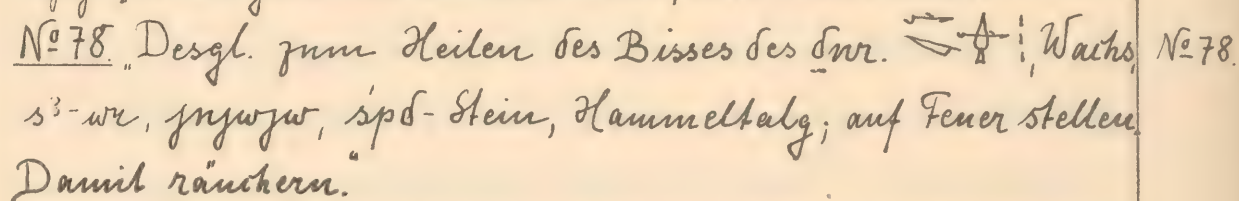 № 78. „Desgl. zum Heilen des Bisses des ḏnr. , Wachs, № 78.
s³-wr, jnjwjw, śpd-Stein, Hammeltalg; auf Feuer stellen.
Damit räuchern.“